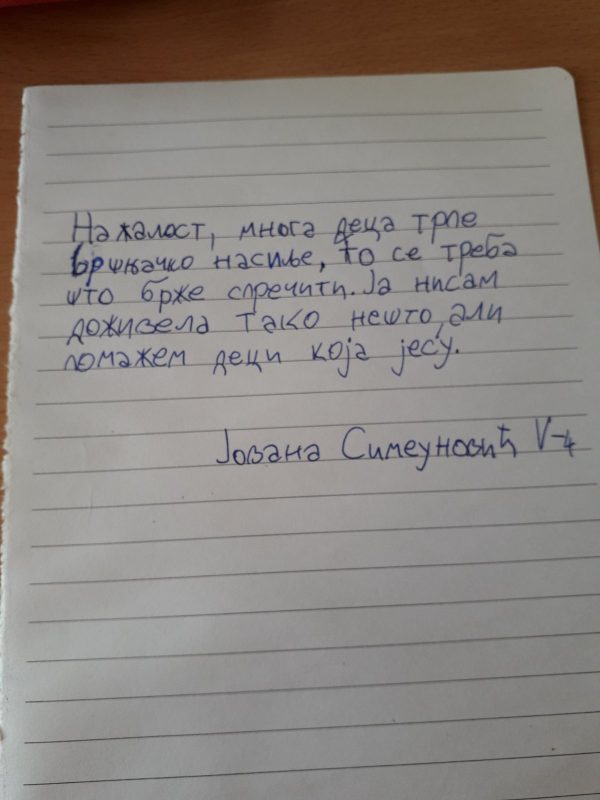 Нажалост, многа деца трпе
вршњачко насиље, то се треба
што брже спречити. Ја нисам
доживела тако нешто, али
помажем деци која јесу.
Јована Симеуновић V-4